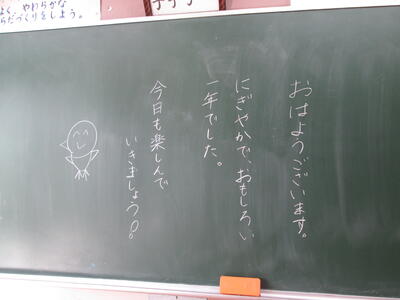 よく、やわらかな
らだづくりをしよう。
おはようございます。
にぎやかで、おもしろい
一年でした。
今日も楽しんで
いきましょう!!